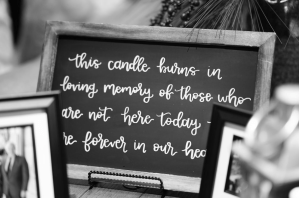 this candle burns in
loving memory of those who
are not here today -
re forever in our hea